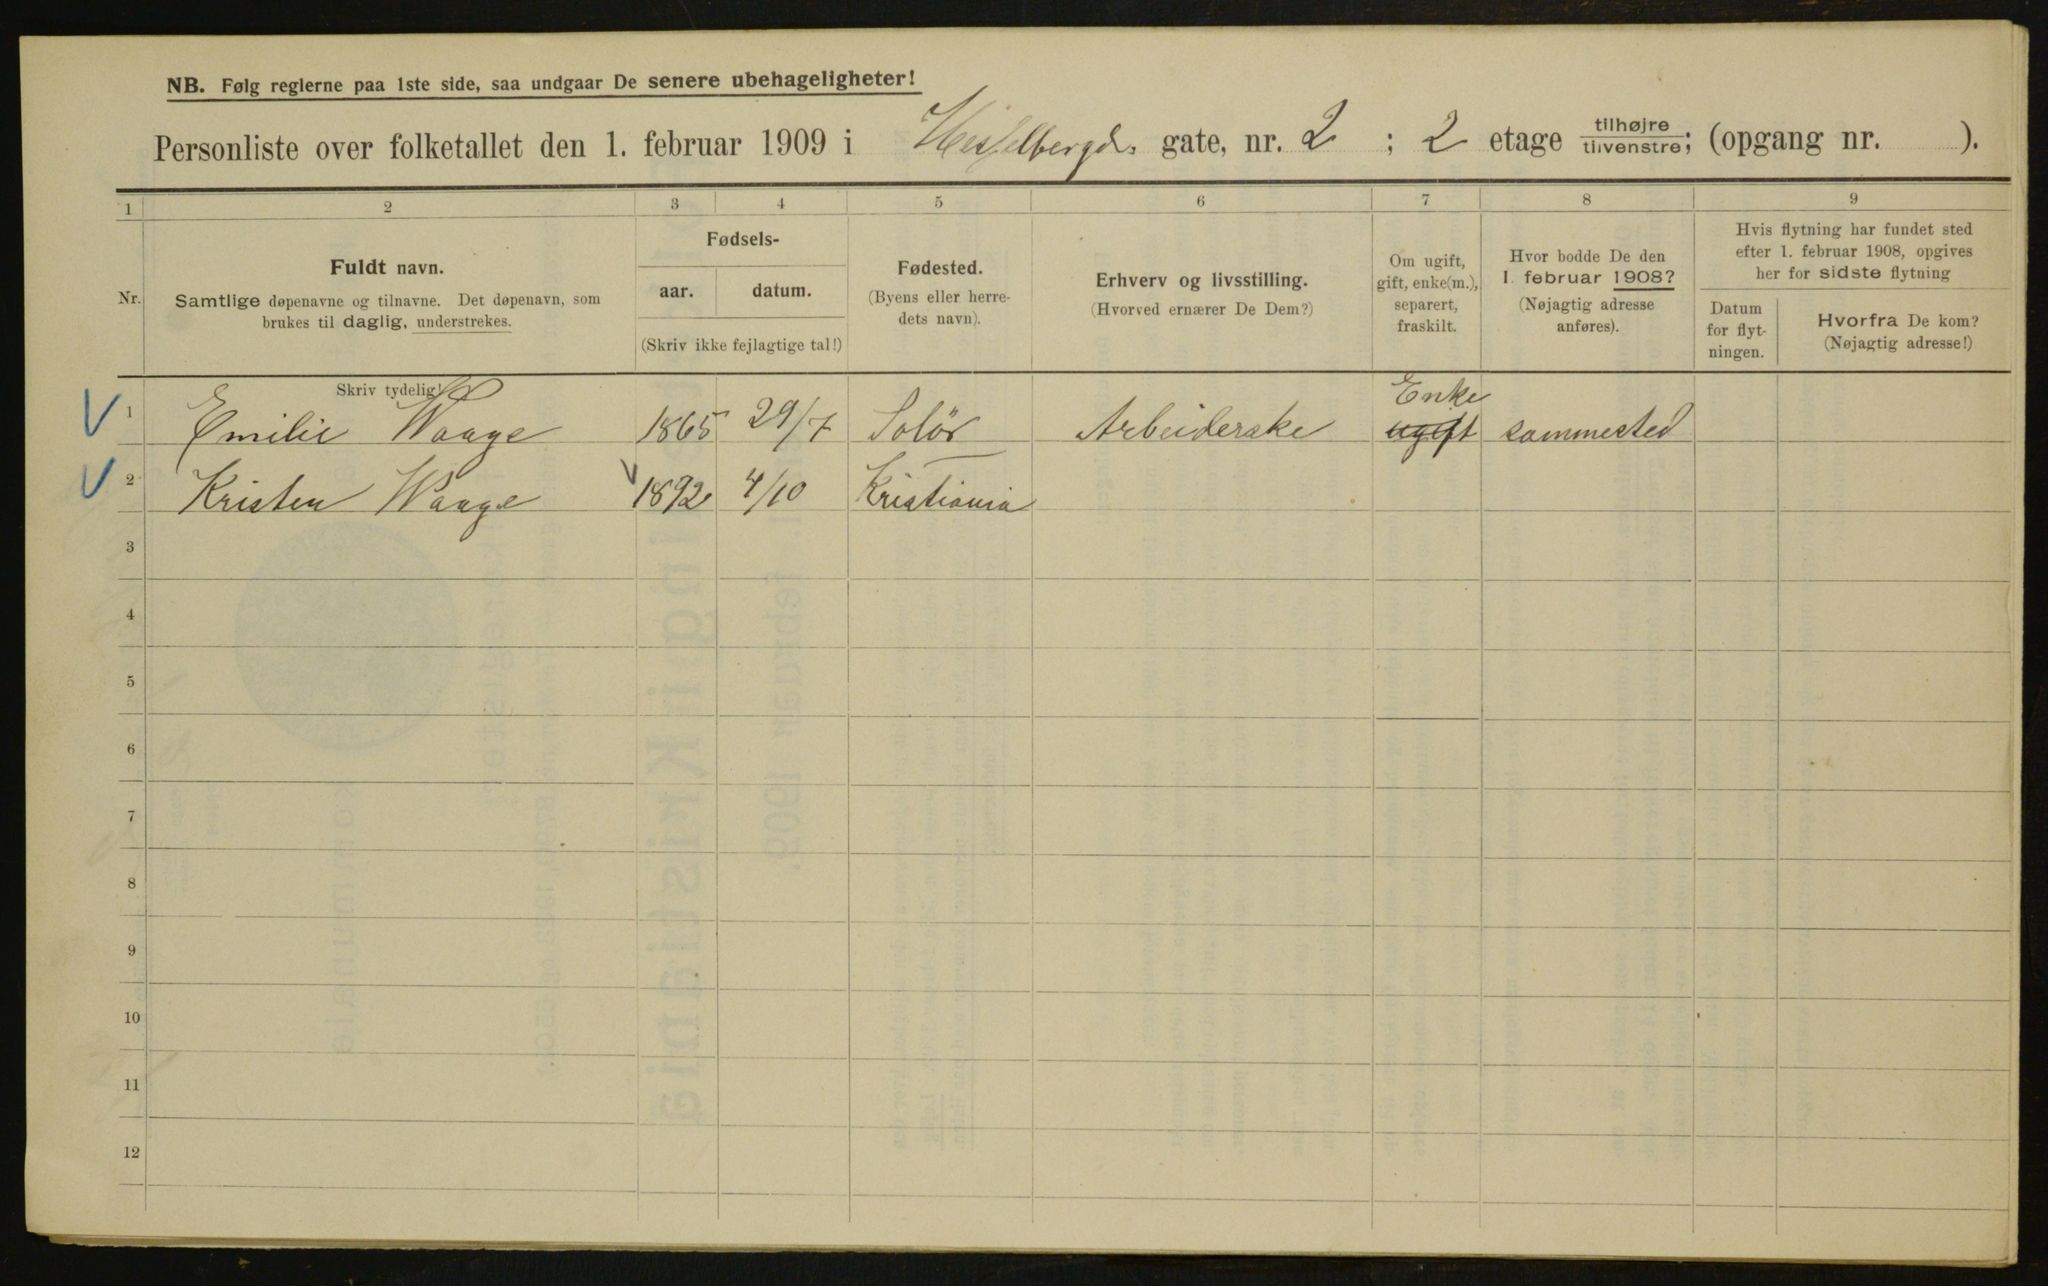 NB. Følg reglerne paa 1ste side, saa undgaar De senere ubehageligheter!
Personliste over folketallet den 1. februar 1909 i Hesselbergds. gate, nr. 2 ; 2 etage tilhøjre tilvenstre; (opgang nr. ).
1 2 3 4 5 6 7 8 9
Nr.
Fuldt navn.
Samtlige døpenavne og tilnavne. Det døpenavn, som
brukes til daglig, understrekes.
Fødsels-
aar. datum.
(Skriv ikke fejlagtige tal!)
Fødested.
(Byens eller herre-
dets navn).
Erhverv og livsstilling.
(Hvorved ernærer De Dem?)
Om ugift,
gift, enke(m.),
separert,
fraskilt.
Hvor bodde De den
1. februar 1908?
(Nøjagtig adresse
anføres).
Hvis flytning har fundet sted
efter 1. februar 1908, opgives
her for sidste flytning
Datum
for flyt-
ningen.
Hvorfra De kom?
(Nøjagtig adresse!)
Skriv tydelig!
Enke
1 Emilie Waage 1865 29/7 Solör Arbeiderske ugift sammested
2 Kristen Waage 1892 4/10 Kristiania
3
4
5
6
7
8
9
10
11
12